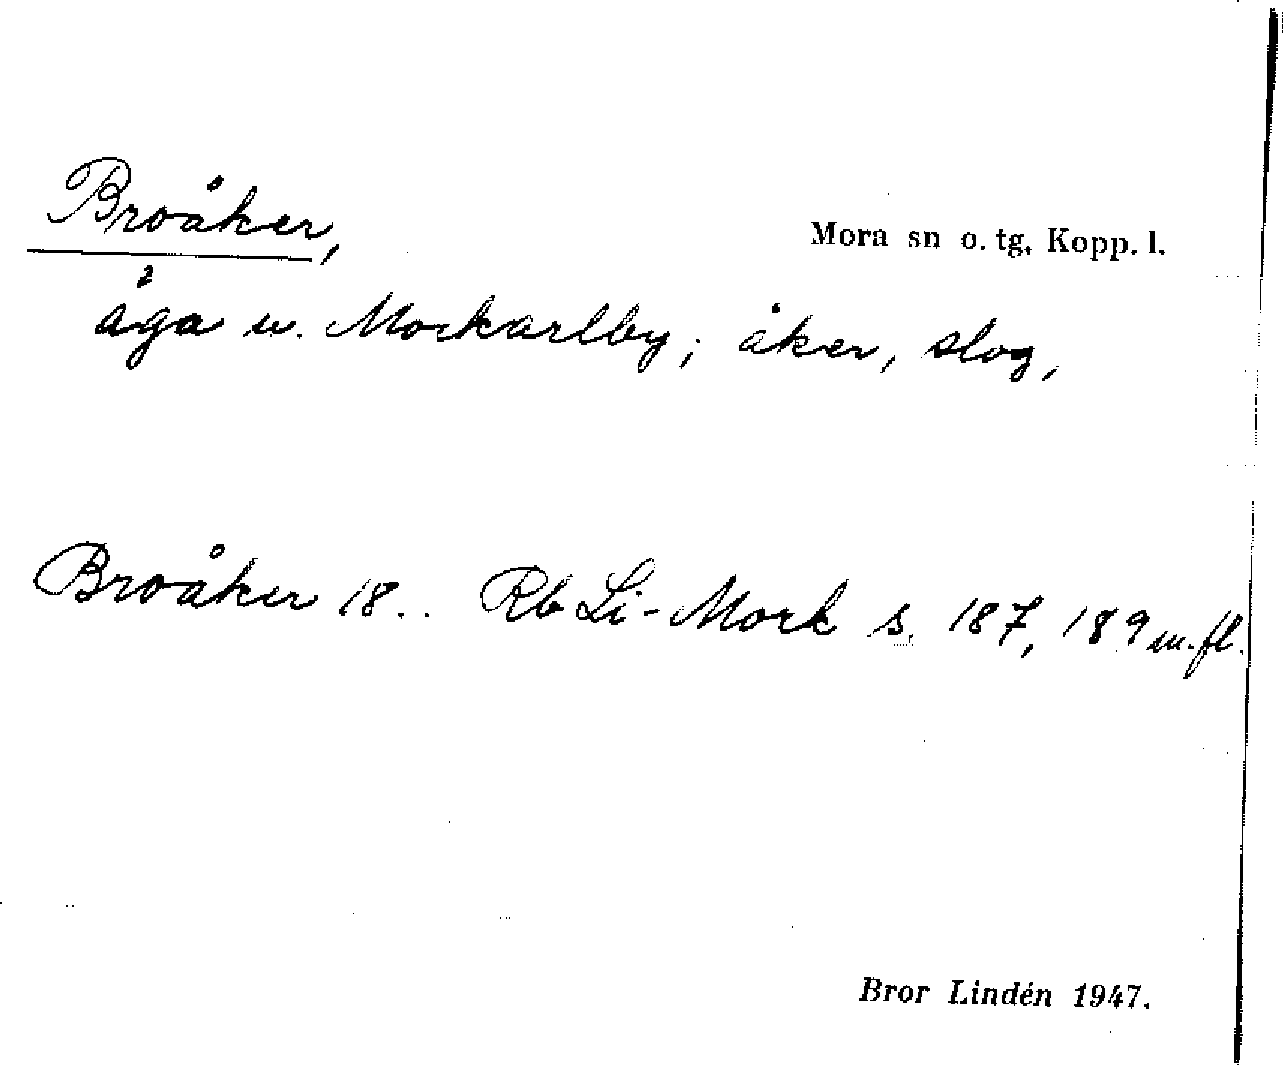 Broåker,
Mora sn o. tg. Kopp. l.
äga u. Morkarlby; åker, slog,
Broåker 18.. Rb Li-Mork s. 187, 189 m. fl.
Bror Lindén 1947.